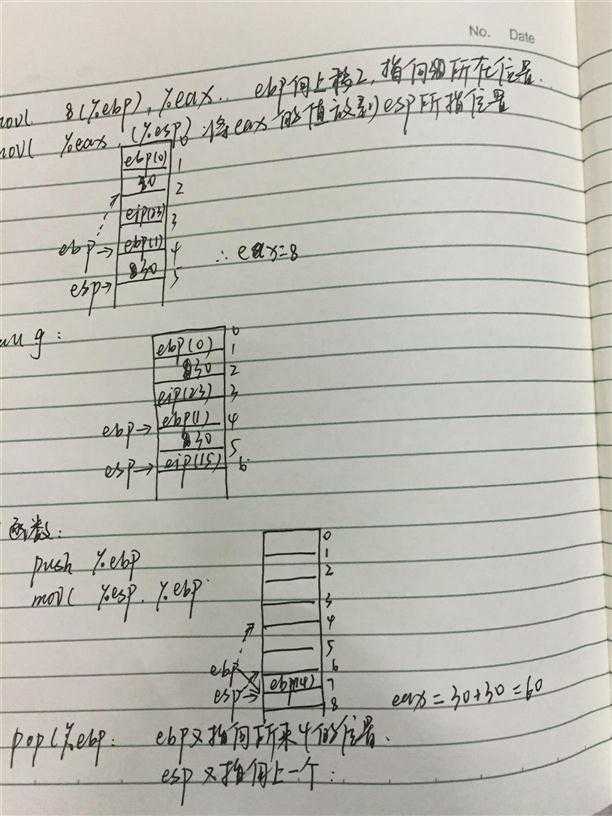 No. Date
movl 8(%ebp), %eax.. ebp向上移2, 指向30所在位置.
movl %eax, (%esp) 将eax的值放到esp所指位置
0
ebp(0) 1
30 2
eip(23) 3
ebp→ ebp(1) 4
∴ eax=8
esp→ 30 5
g:
0
ebp(0) 1
30 2
eip(23) 3
ebp→ ebp(1) 4
30 5
esp→ eip(15) 6
函数:
push %ebp
movl %esp, %ebp
0
1
2
3
4
5
6
ebp
esp ebp(4) 7
8
eax=30+30=60
popl %ebp: ebp又指向所来4的位置.
esp又指向上一个: